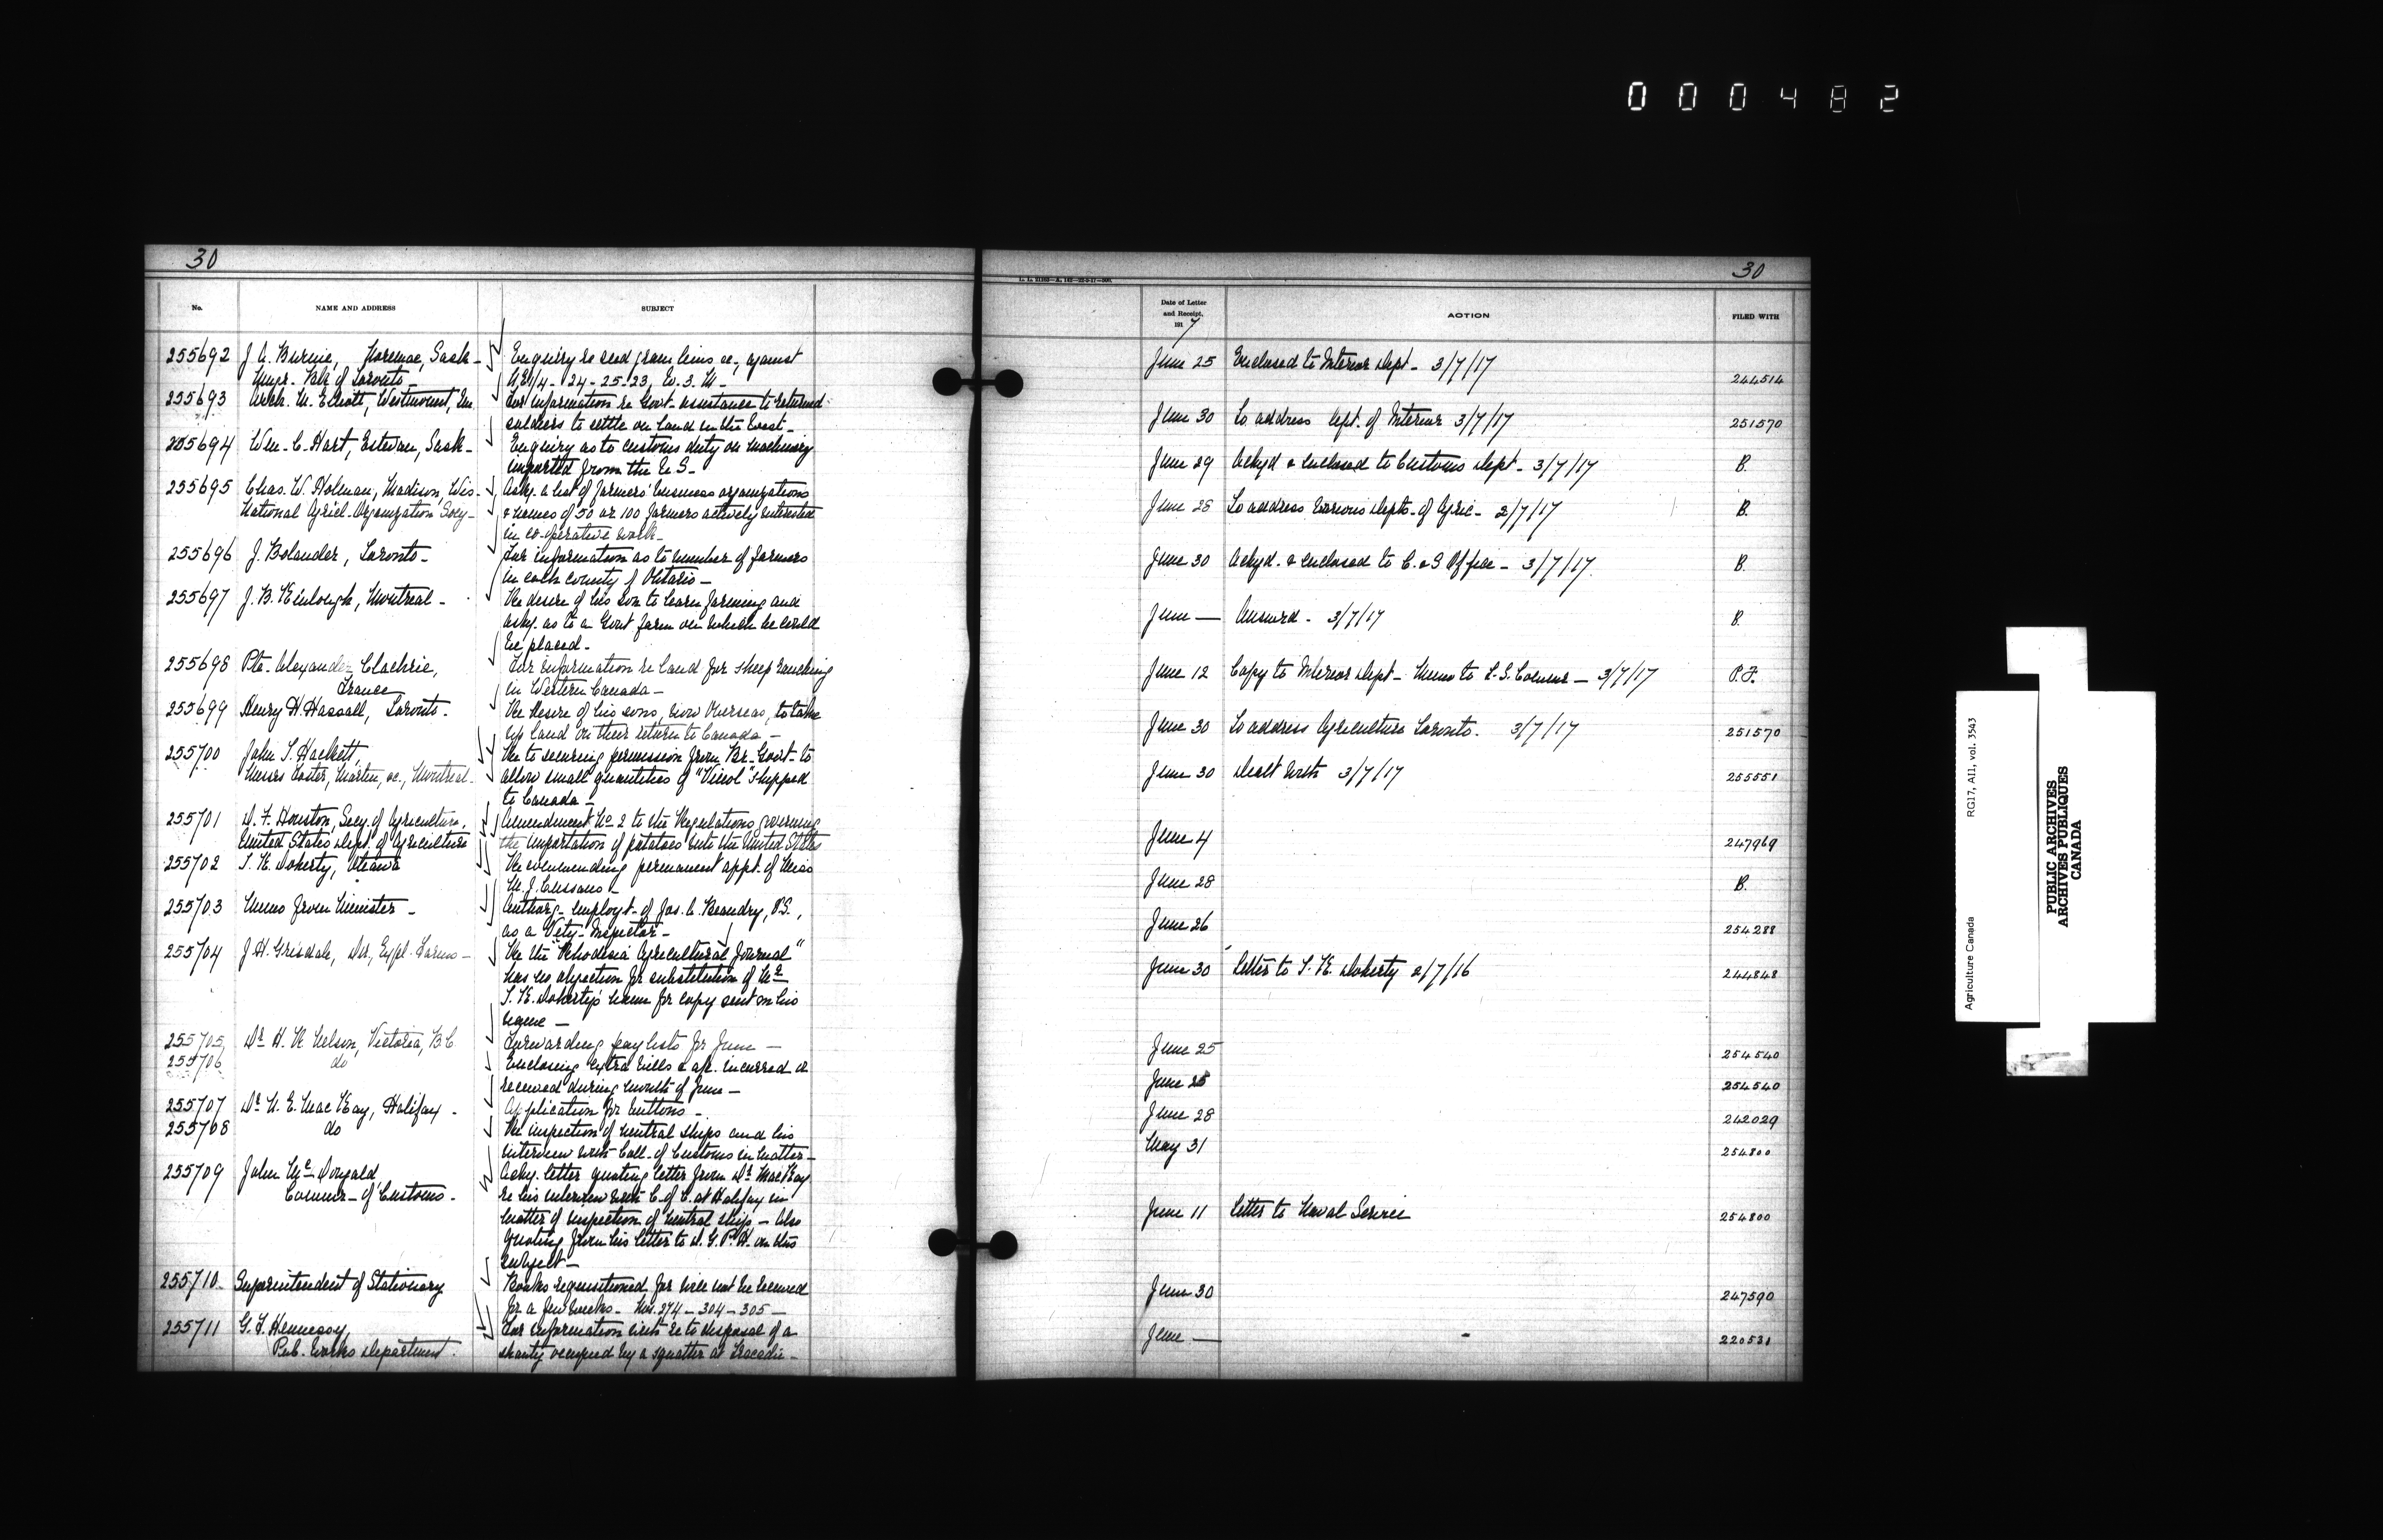 000482
30
No.
NAME AND ADDRESS
SUBJECT
255692 J. A. Burnie, Sask - Enquiry re seed grain liens &c., against
Mngr. Bk of Toronto - N.E. 1/4 - 24-25-23, W. 3. M -
255693 Arch. M. Elliott, Westmount, For information re Govt. assistance to returned
soldiers to settle on land in the West -
255694 Wm. C. Hart, Estevan, Sask - Enquiry as to customs duty on machinery
imported from the U.S. -
255695 Chas. W. Holman, Madison, Wis - Asks. a list of farmers' business organizations
National Agricl. Organization Socy - & names of 50 or 100 farmers actively interested
in co-operative work -
255696 J. Bolander, Toronto - For information as to number of farmers
in each county of Ontario -
255697 J. B. Kinlough, Montreal - Re desire of his son to learn farming and
asks. as to a Govt farm on which he could
be placed -
255698 Pte. Alexander Clachrie, For information re land for sheep ranching
France in Western Canada -
255699 Henry H. Hassall, Toronto - Re desire of his sons, now Overseas, to take
up land on their return to Canada -
255700 John T. Hackett, Re to securing permission from Br. Govt. to
Messrs Foster, Martin, &c., Montreal - allow small quantities of "Virol" shipped
to Canada -
255701 D. F. Houston, Secy. of Agriculture, Amendment No 2 to the Regulations governing
United States Dept. of Agriculture the importation of potatoes into the United States
255702 T. K. Doherty, Ottawa Recommending permanent appt. of Miss
M. J. Cussans -
255703 Memo from Minister - Authorg. employt. of Jos. A. Beaudry, V.S.,
as a Vety. Inspector -
255704 J. H. Grisdale, Dir., Expl. Farms - Re the "Rhodesia Agricultural Journal"
has no objection for substitution of Mr
T. K. Doherty's name for copy sent in his
name -
255705 Dr. H. R. Nelson, Victoria, B.C Forwarding pay lists for June -
255706 do Enclosing extra bills & a/c. incurred or
received during month of June -
255707 Dr. N. E. MacKay, Halifax - Application for buttons -
255708 do Re inspection of neutral ships and his
interview with Coll. of Customs in matter -
255709 John McDougald Ackg. letter quoting letter from Dr. MacKay
Commr - of Customs - re his interview with C. of C. at Halifax in
matter of inspection of neutral ships - Also
quoting from his letter to D. G. P. H. on this
subject -
255710 Superintendent of Stationary Books requisitioned for will not be received
for a few weeks - Nos. 274 - 304 - 305 -
255711 G. T. Hennessy, For information with re to disposal of a
Pub. Works Department. shanty occupied by a squatter at Tracadie -
30
Date of Letter
and Receipt,
191 7
ACTION
FILED WITH
June 25 Enclosed to Interior Dept - 3/7/17 244514
June 30 To address Dept. of Interior 3/7/17 251570
June 29 Ackgd & enclosed to Customs Dept - 3/7/17 B.
June 28 To address Various Depts - of Agric - 2/7/17 B.
June 30 Ackgd. & enclosed to C. & S Office - 3/7/17. B.
June — Answrd - 3/7/17 B.
June 12 Copy to Interior Dept - Memo to L. S. Commr - 3/7/17 P. F.
June 30 To address Agriculture Toronto. 3/7/17 251570
June 30 Dealt with 3/7/17 255551
June 4 247969
June 28 B.
June 26 254288
June 30 Letter to T. K. Doherty 2/7/16 244848
June 25 254540
June 25 254540
June 28 242029
May 31 254800
June 11 Letter to Naval Service 254800
June 30 247590
June — 220531
Agriculture Canada RG17, AII, vol. 3543
PUBLIC ARCHIVES
ARCHIVES PUBLIQUES
CANADA